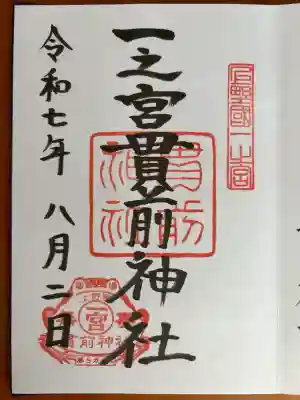 上野國一之宮
一之宮貫前神社
貫前神社
令和七年 八月二日
一宮
貫前神社